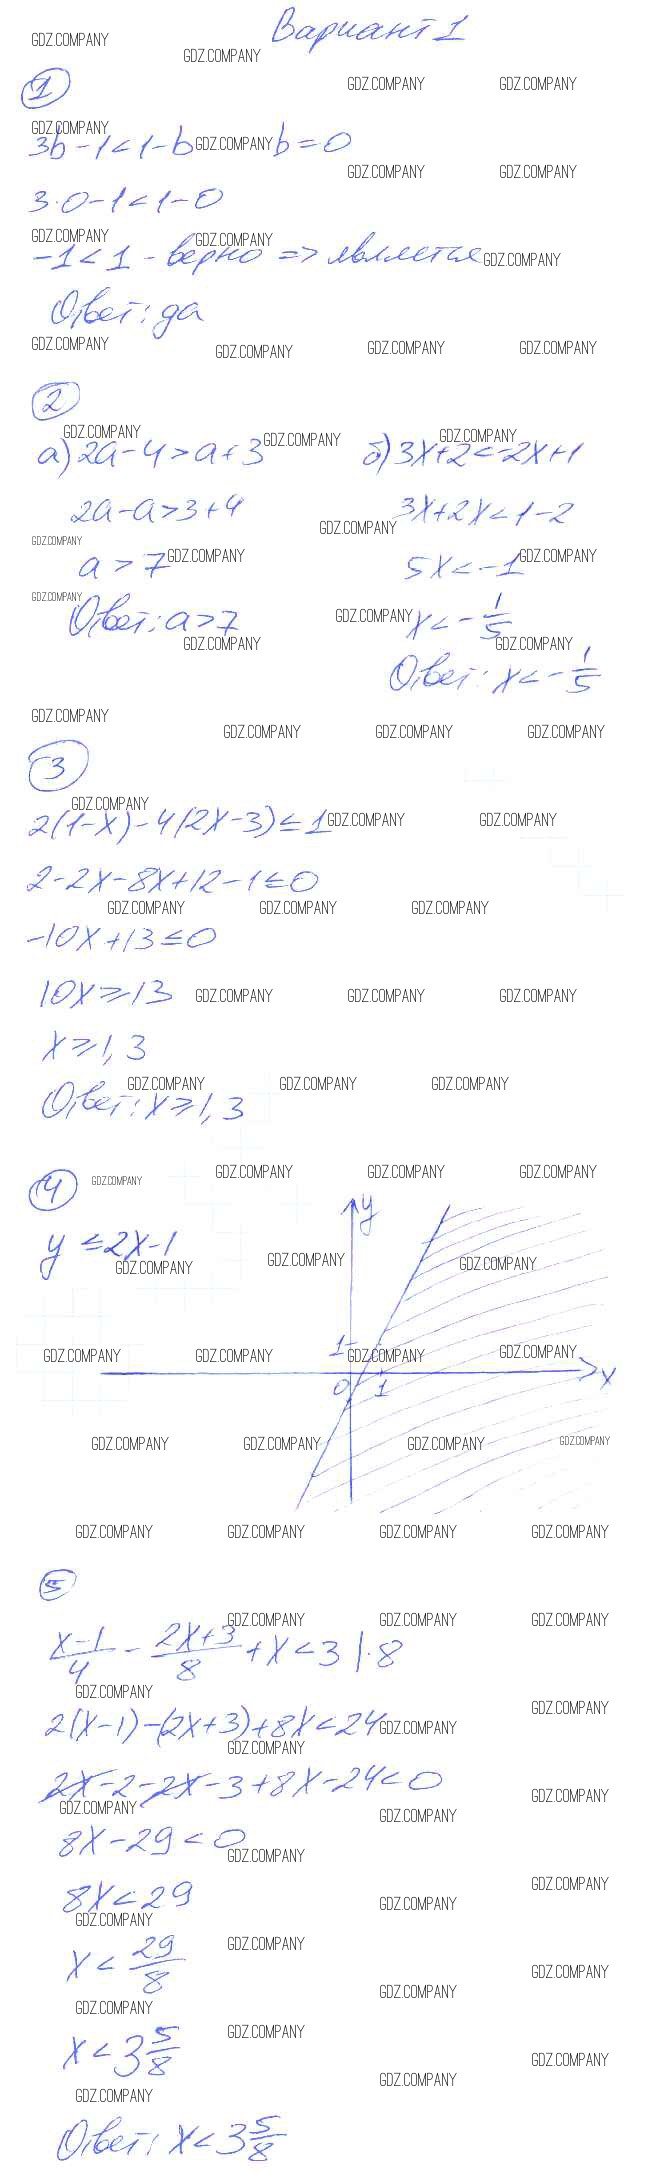 Вариант 1
1
3b-1<1-b b=0
3·0-1<1-0
-1<1 - верно => является
Ответ: да
2
а) 2a-4>a+3 б) 3x+2<-2x+1
2a-a>3+4 3x+2x<1-2
a>7 5x<-1
Ответ: a>7 x<-1/5
Ответ: x<-1/5
3
2(1-x)-4(2x-3)≤1
2-2x-8x+12-1≤0
-10x+13≤0
10x≥13
x≥1,3
Ответ: x≥1,3
4
y≤2x-1
y
1
0 1 x
5
(x-1)/4 - (2x+3)/8 + x < 3 |·8
2(x-1)-(2x+3)+8x<24
2x-2-2x-3+8x-24<0
8x-29<0
8x<29
x<29/8
x<3 5/8
Ответ: x<3 5/8
GDZ.COMPANY